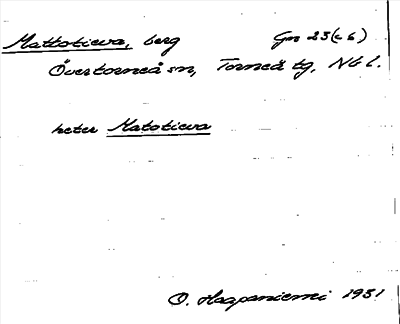 Mattotieva, berg Gn 23 (c 6)
Övertorneå sn, Torneå tg, Nb l.
heter Matotieva
O. Haapaniemi 1931